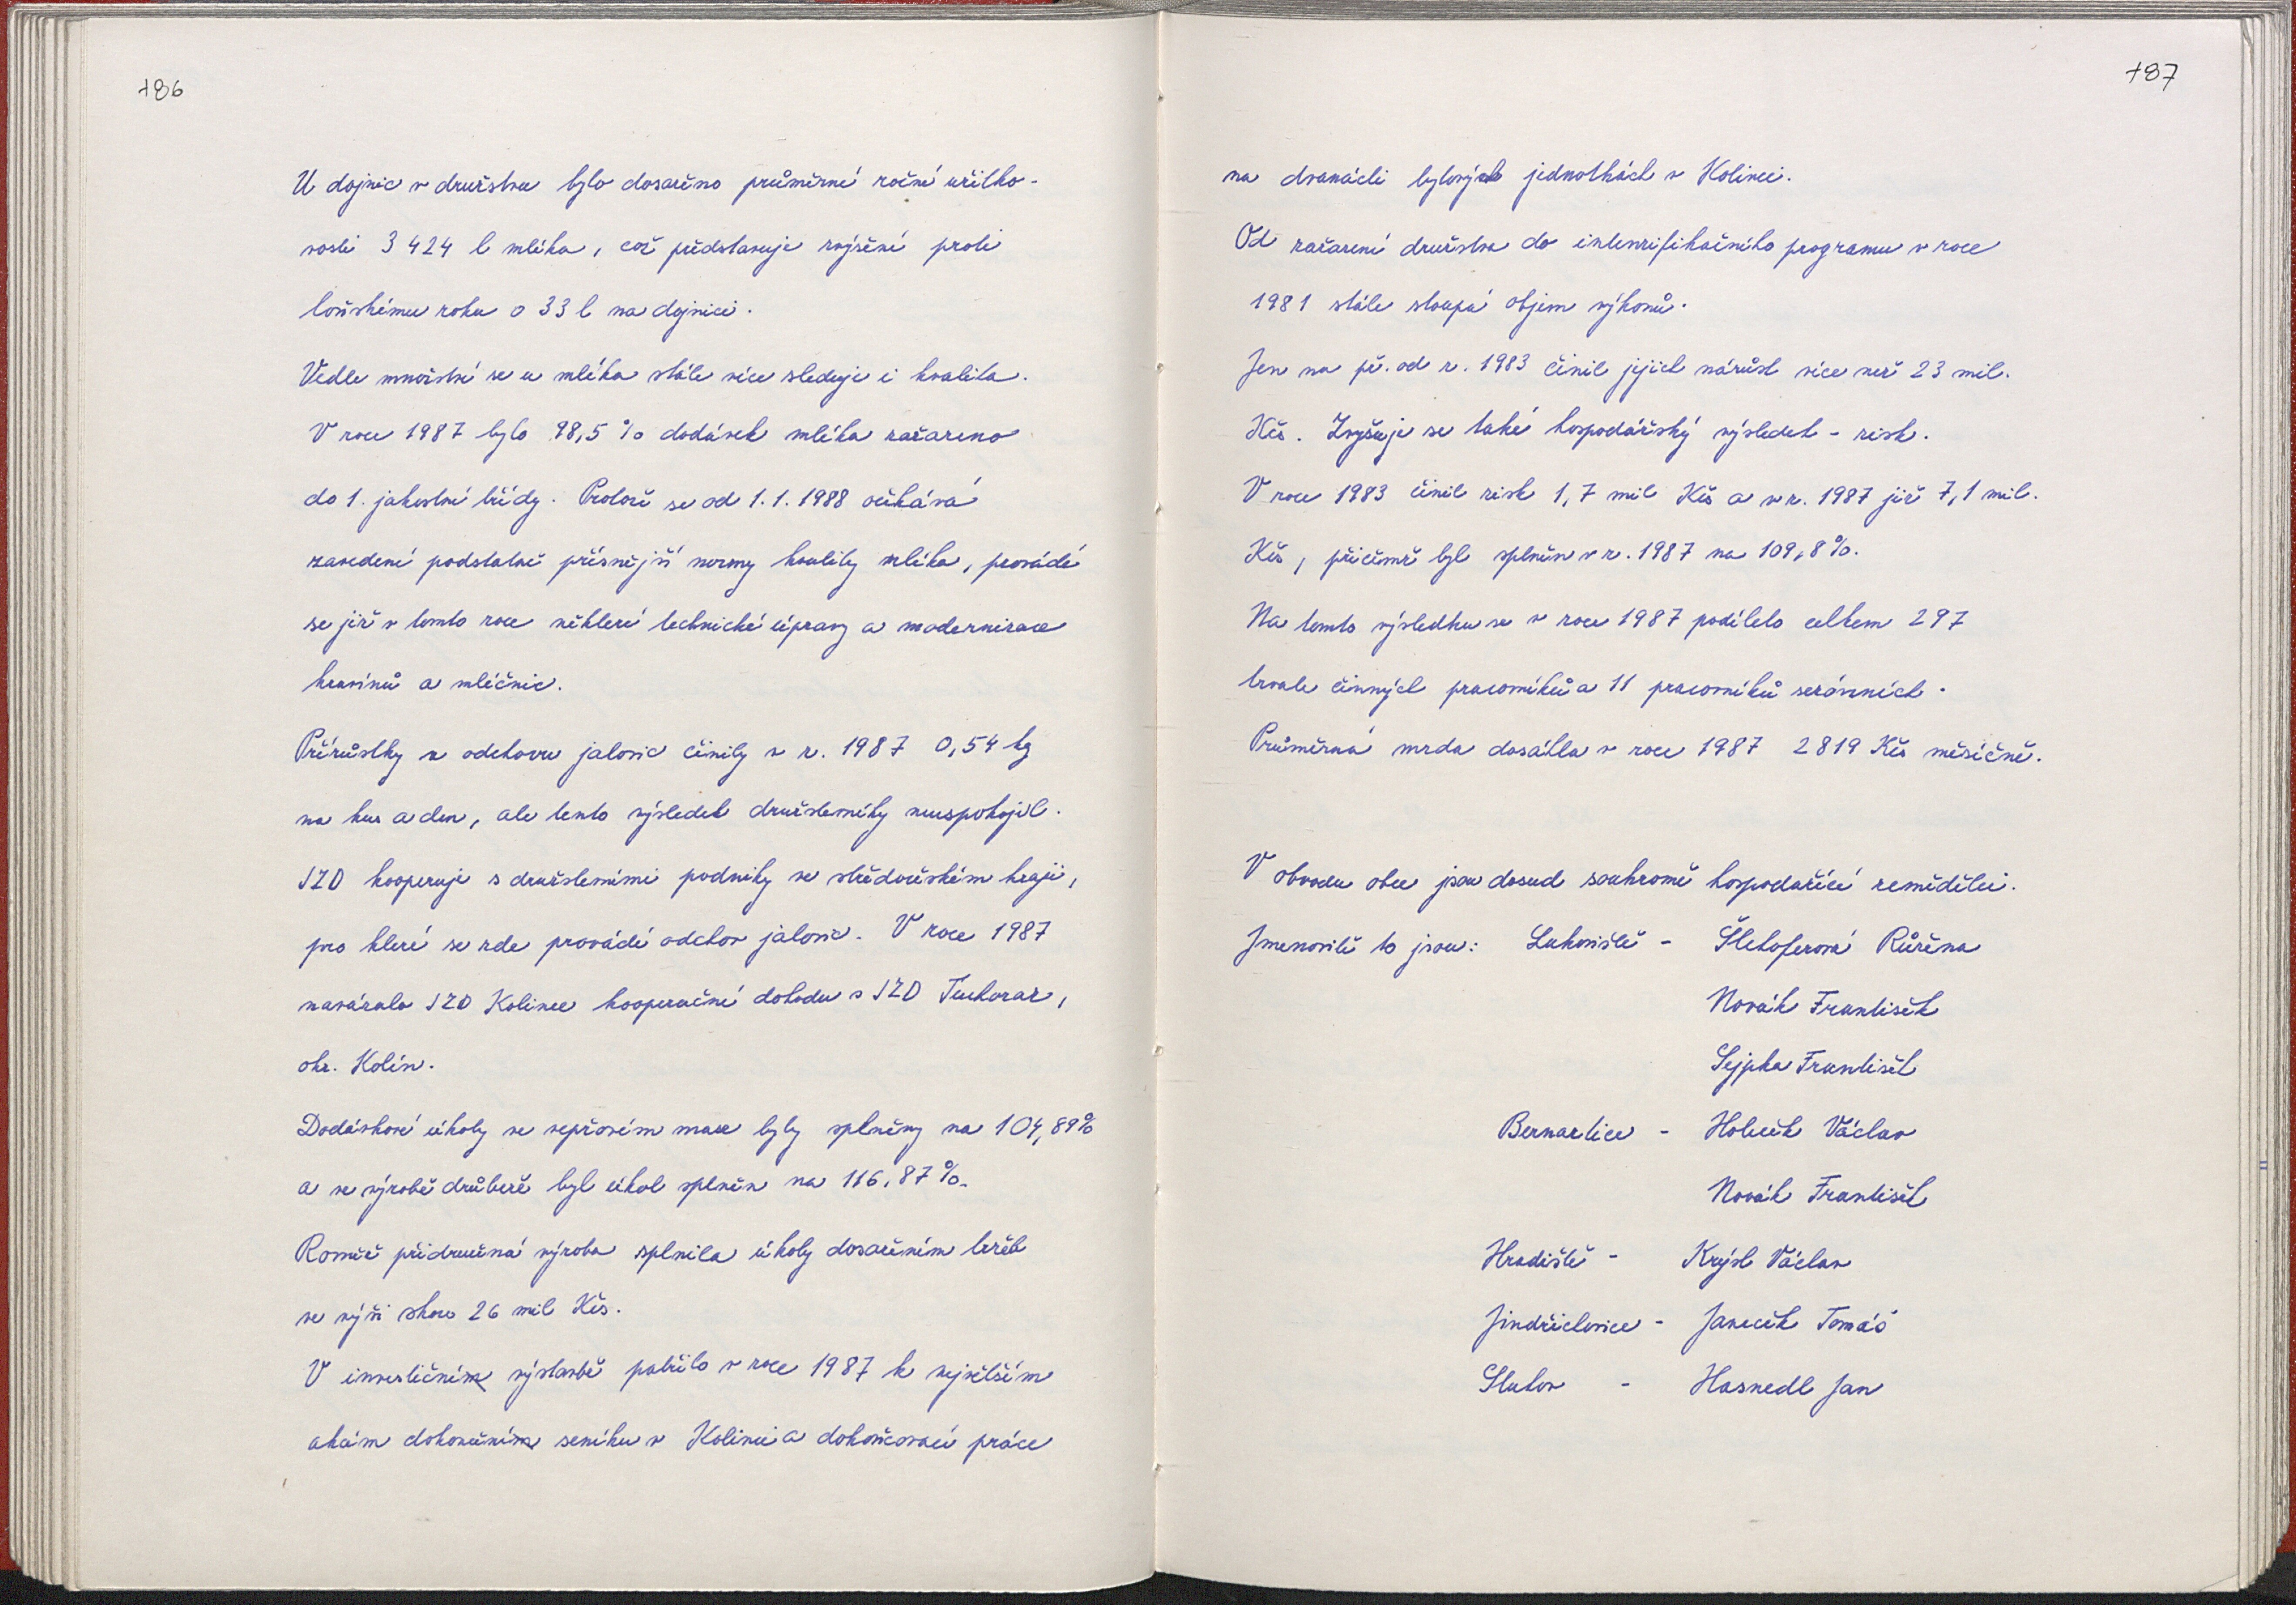 186
U dojnic v družstvu bylo dosaženo průměrné roční užitko-
vosti 3 424 l mléka, což představuje zvýšení proti
loňskému roku o 33 l na dojnici.
Vedle množství se u mléka stále více sleduje i kvalita.
V roce 1987 bylo 98,5 % dodávek mléka zařazeno
do 1. jakostní třídy. Protože se od 1.1.1988 očekává
zavedení podstatně přísnější normy kvality mléka, provádí
se již v tomto roce některé technické úpravy a modernizace
kravínů a mléčnic.
Přírůstky u odchovu jalovic činily v r. 1987 0,54 kg
na kus a den, ale tento výsledek družstevníky neuspokojil.
JZD kooperuje s družstevními podniky ve středočeském kraji,
pro které se zde provádí odchov jalovic. V roce 1987
navázalo JZD Kolinec kooperační dohodu s JZD Tuchoraz,
okr. Kolín.
Dodávkové úkoly ve vepřovém mase byly splněny na 104,89%
a ve výrobě drůbeže byl úkol splněn na 116,87 %.
Rovněž přidružená výroba splnila úkoly dosažením tržeb
ve výši skoro 26 mil Kčs.
V investiční výstavbě patřilo v roce 1987 k největším
akcím dokončení seníku v Kolinci a dokončovací práce
187
na dvanácti bytových jednotkách v Kolinci.
Od zařazení družstva do intenzifikačního programu v roce
1981 stále stoupá objem výkonů.
Jen na př. od r. 1983 činil jejich nárůst více než 23 mil.
Kčs. Zvyšuje se také hospodářský výsledek - zisk.
V roce 1983 činil zisk 1,7 mil Kčs a v r. 1987 již 7,1 mil.
Kčs, přičemž byl splněn v r. 1987 na 109,8%.
Na tomto výsledku se v roce 1987 podílelo celkem 297
trvale činných pracovníků a 11 pracovníků sezónních.
Průměrná mzda dosáhla v roce 1987 2819 Kčs měsíčně.
V obvodu obce jsou dosud soukromě hospodařící zemědělci.
Jmenovitě to jsou: Lukoviště - Šlehoferová Růžena
Novák František
Sejpka František
Bernartice - Holeček Václav
Novák František
Hradiště - Krýsl Václav
Jindřichovice - Janeček Tomáš
Sluhov - Hasnedl Jan